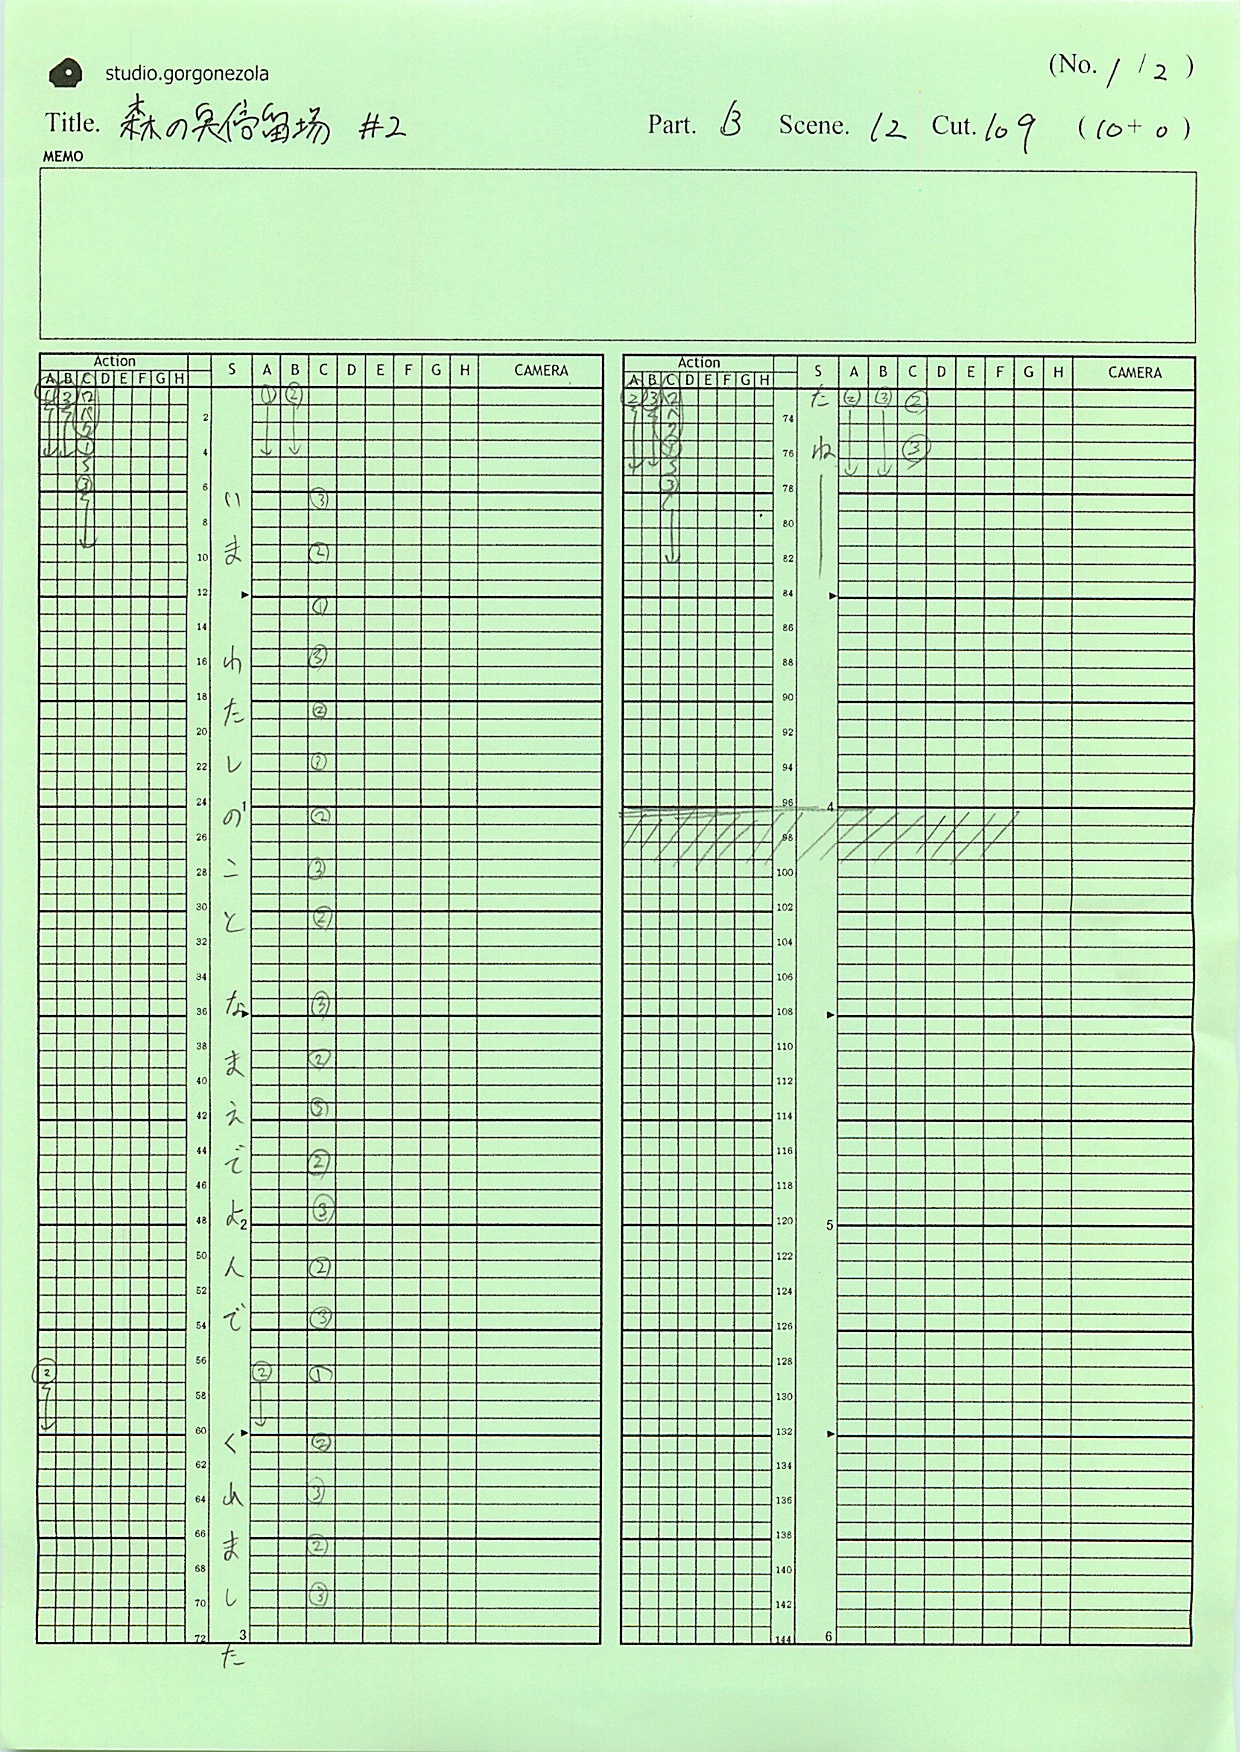 studio.gorgonezola
(No. 1 / 2 )
Title. 森の停留場 #2 Part. B Scene. 12 Cut. 109 ( 10 + 0 )
MEMO
Action
A B C D E F G H
S A B C D E F G H CAMERA
① ②
2
4
6 い ③
8
10 ま ②
12 ①
14
16 わ ③
18 た ②
20
22 し
24 の 1 ②
26
28 こ ③
30 と ②
32
34
36 な ③
38 ま ②
40
42 え ③
44 で ②
46
48 よ 2 ③
50 ん ②
52
54 で ③
56 ② ② ①
58
60 く ②
62
64 れ ③
66 ま ②
68
70 し ③
72 3
た
Action
A B C D E F G H
S A B C D E F G H CAMERA
た ② ③ ②
74
76 ね ③
78
80
82
84
86
88
90
92
94
96 4
98
100
102
104
106
108
110
112
114
116
118
120 5
122
124
126
128
130
132
134
136
138
140
142
144 6